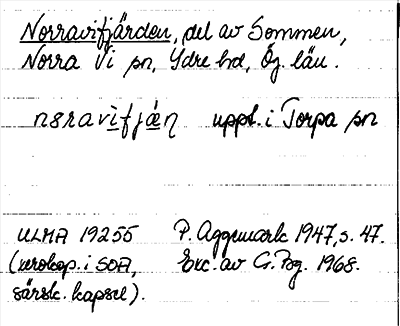 Norravifjärden, del av Sommen,
Norra Vi sn, Ydre hd, Ög. län.
nɜravifjæ̣ṇ uppt. i Torpa sn
ULMA 19255 P. Aggmark 1947, s. 47.
(xerokop. i SOA, Exc. av G. Bg. 1968.
särsk. kapsel).